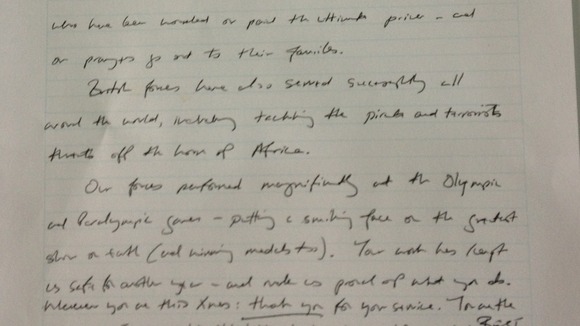 who have been wounded or paid the ultimate price - and
our prayers go out to their families.
British forces have also served successfully all
around the world, including tackling the pirates and terrorists
threats off the horn of Africa.
Our forces performed magnificently at the Olympic
and Paralympic games - putting a smiling face on the greatest
show on earth (and winning medals too). Your work has kept
us safe for another year - and made us proud of what you do.
Wherever you are this Xmas: thank you for your service. You are the